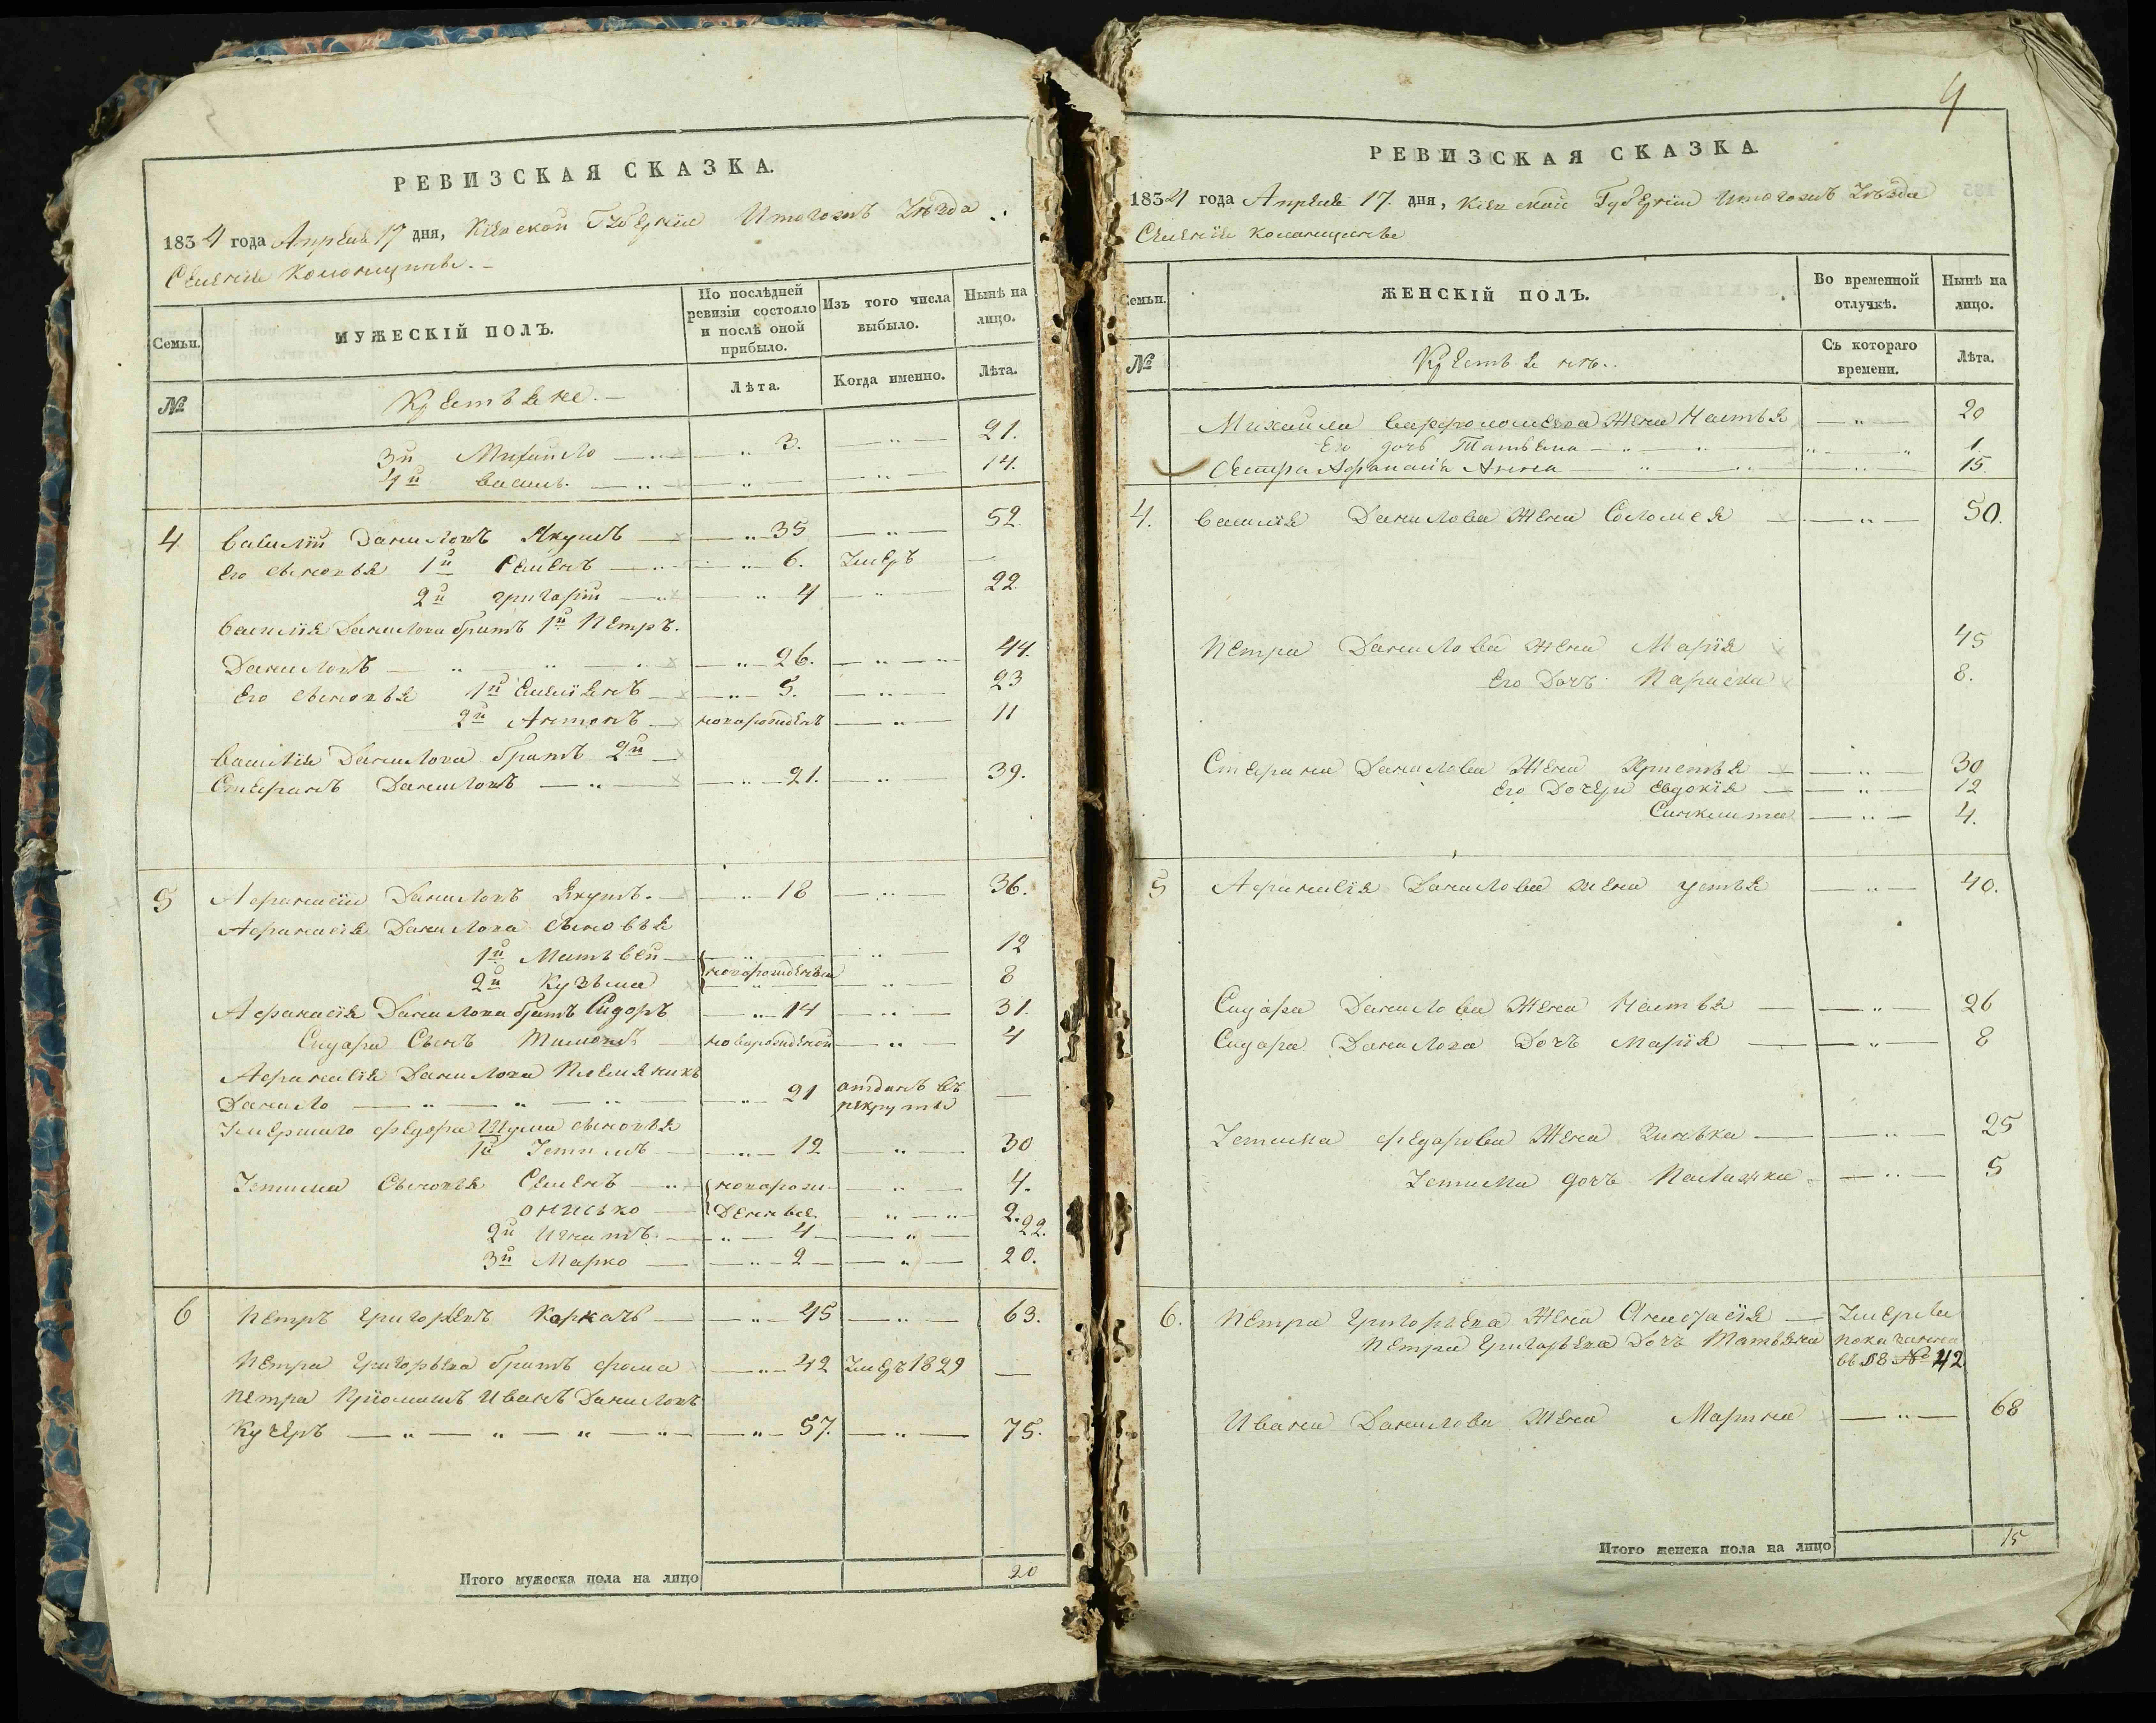 РЕВИЗСКАЯ СКАЗКА.
1834 года Апреля 17 дня, Кіевской Губерніи Уезда
Селенія
Семьи. МУЖЕСКІЙ ПОЛЪ. По послѣдней ревизіи состояло и послѣ оной прибыло. Изъ того числа выбыло. Нынѣ на лицо.
№ Крестьяне. Лѣта. Когда именно. Лѣта.
3й Михайло 3. 21.
4й Василь. 14.
4 Василій Даниловъ Якушъ 35 52.
Его сыновья 1й Семенъ 6. Умеръ
2й Григорій 4 22.
Василія Данилова братъ 1й Петръ.
Даниловъ 26. 44.
Его сыновья 1й Емиліянъ 5. 23
2й Антонъ новорожденъ 11
Василія Данилова братъ 2й
Стефанъ Даниловъ 21. 39.
5 Афанасій Даниловъ 18 36.
Афанасія Данилова сыновья
1й Матвей 12
2й Кузьма новорожденые 8
Афанасія Данилова братъ Сидоръ 14 31.
Сидора Сынъ Тимошъ новорожденой 4
Афанасія Данилова Племяникъ
Данило 21 отданъ въ рекруты
Умершаго Федора сыновья
1й Устимъ 12 30
Устима Сыновья Семенъ новорож- 4.
Онисько денные 2.
2й Игнатъ 4 22.
3й Марко 2 20.
6 Петръ Григорьевъ Коркачъ 45 63.
Петра Григорьева братъ Фома 42 Умеръ 1829
Петра Пріомышъ Иванъ Даниловъ
Кучеръ 57. 75.
Итого мужеска пола на лицо 20
4
РЕВИЗСКАЯ СКАЗКА.
1834 года Апреля 17. дня, Кіевской Губерніи Уезда
Селенія
Семьи. ЖЕНСКІЙ ПОЛЪ. Во временной отлучкѣ. Нынѣ на лицо.
№ Крестьянъ. Съ котораго времени. Лѣта.
Михайла Варфоломеева Жена Настья 20
Его дочь Татьяна 1
Сестра Афанасія Анна 15
4. Василія Данилова Жена Соломея 50.
Петра Данилова жена Марія 45
Его Дочь Параска 8.
Стефана Данилова Жена Христья 30
Его Дочери Евдокія 12
Синклита 4.
5 Афанасія Данилова жена Устья 40.
Сидора Данилова Жена Настья 26
Сидора Данилова Дочь Марія 8
Устима Федорова Жена Зинька 25
Устима дочь Палажка 5
6. Петра Григорьева Жена Анастасія Умерла
Петра Григорьева Дочь Татьяна показанна
въ 58 № 42
Ивана Данилова Жена Марина 68
Итого женска пола на лицо 15